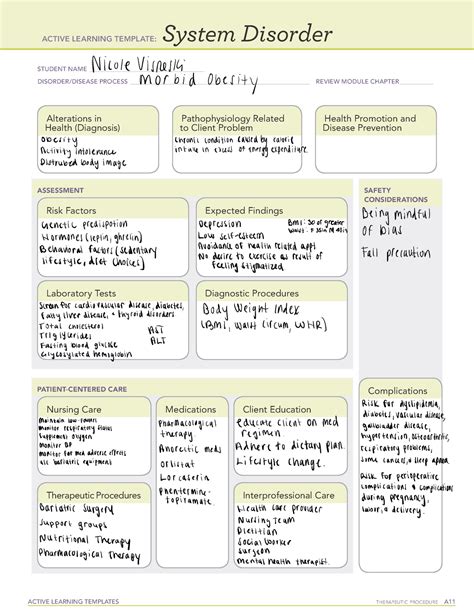 ACTIVE LEARNING TEMPLATE: System Disorder
STUDENT NAME Nicole Visneski
DISORDER/DISEASE PROCESS Morbid Obesity REVIEW MODULE CHAPTER
Alterations in
Health (Diagnosis)
Obesity
Activity intolerance
Distrubed body image
Pathophysiology Related
to Client Problem
Chronic condition caused by calorie
intake in excess of energy expenditure.
Health Promotion and
Disease Prevention
ASSESSMENT
SAFETY
CONSIDERATIONS
Risk Factors
Genetic predispotion
Hormones (leptin, ghrelin)
Behavioral factors (sedentary
lifestyle, diet choices)
Expected Findings
Depression
Low self-esteem
Avoidance of health related appt
No desire to exercise as result of
feeling stigmatized
BMI: 30 or greater
Being mindful
of bias
Fall precaution
Laboratory Tests
Screen for cardiovascular disease, diabetes,
fatty liver disease, + thyroid disorders
Total cholesterol
Triglycerides
Fasting blood glucose
Glycosylated hemoglobin
AST
ALT
Diagnostic Procedures
Body Weight Index
(BMI, Waist Circum, WHR)
PATIENT-CENTERED CARE
Complications
Risk for dyslipidemia,
diabetes, vascular disease,
gallbladder disease,
hypertension, osteoarthritis,
respiratory problems,
some cancers, + sleep apnea
Risk for perioperative
complications + complications
during pregnancy,
labor, + delivery.
Nursing Care
Maintain low-fowlers
Monitor respiratory status
Supplemental oxygen
Monitor for med adverse effects
use bariatric equipment
Medications
Pharmacological
therapy
Anorectic meds
Orlistat
Lorcaserin
Phentermine-
topiramate.
Client Education
Educate client on med
regimen
Adhere to dietary plan.
Lifestyle change.
Therapeutic Procedures
Bariatric surgery
Support groups
Nutritional Therapy
Pharmacological Therapy
Interprofessional Care
Health care provider
Nursing Team
Dietitian
Social worker
Surgeon
Mental health therapist.
ACTIVE LEARNING TEMPLATES THERAPEUTIC PROCEDURE A11